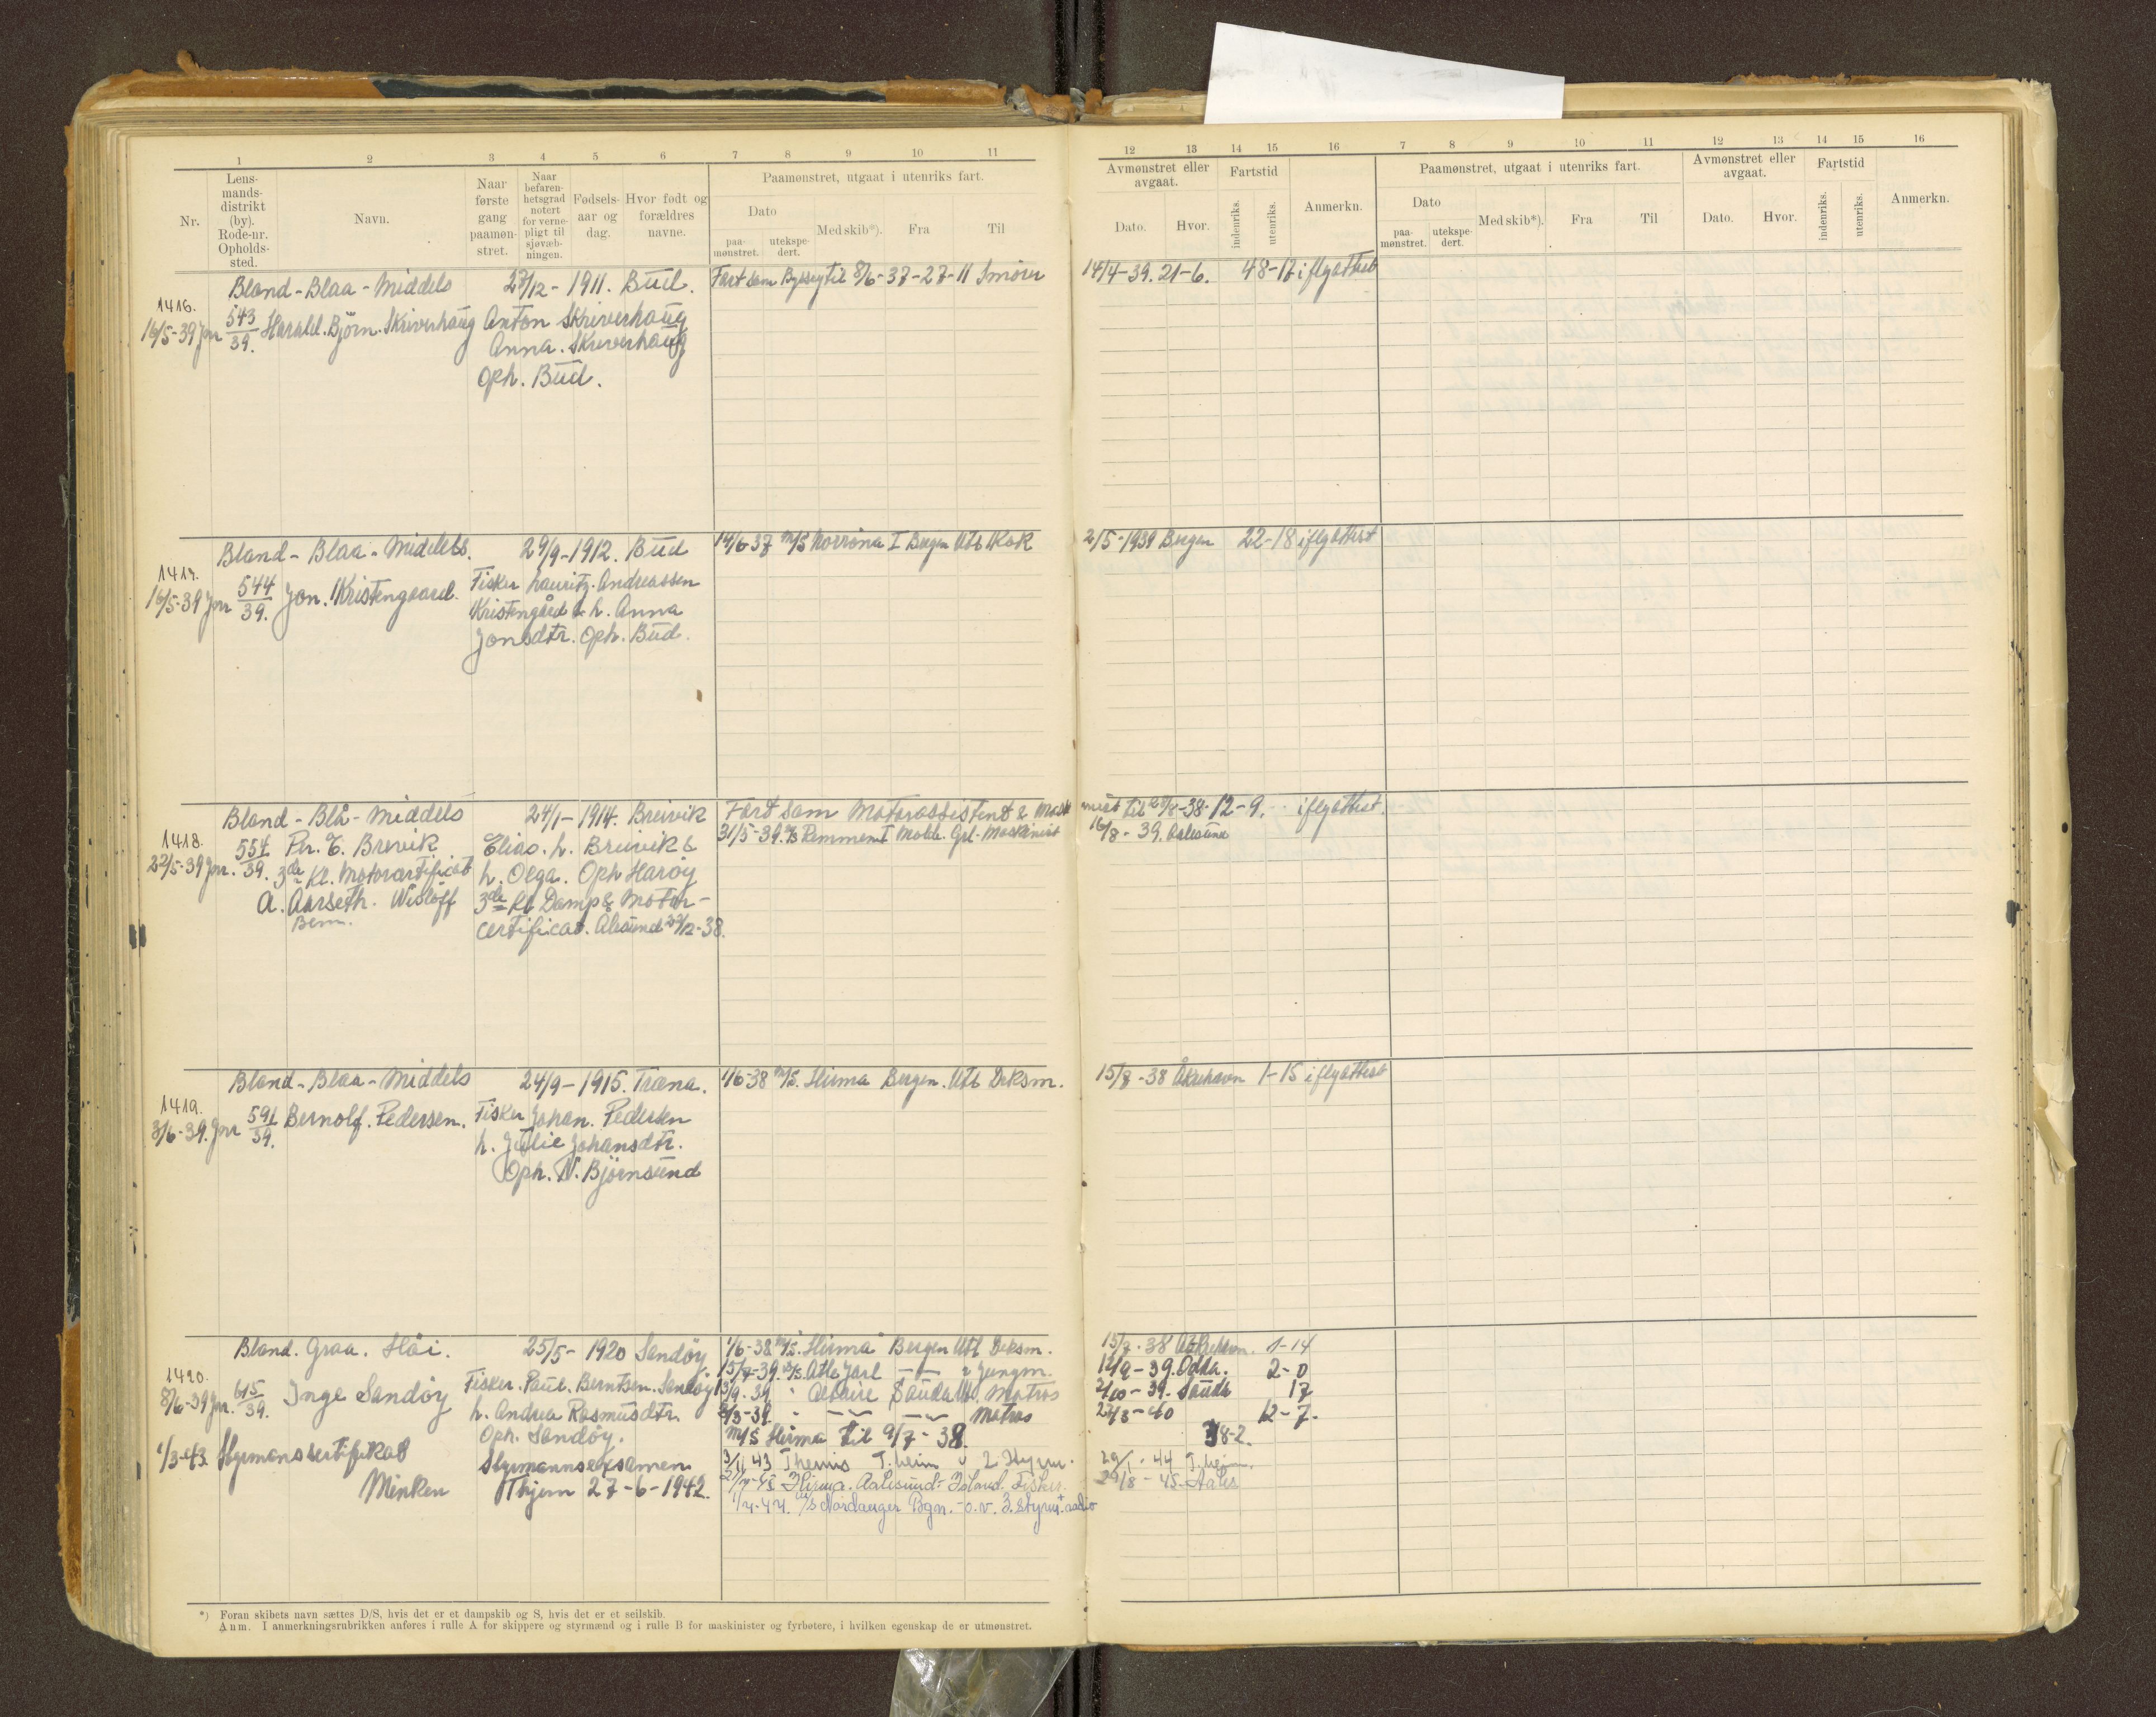 1 2 3 4 5 6 7 8 9 10 11
Nr.
Lens-
mands-
distrikt
(by).
Rode-nr.
Opholds-
sted.
Navn.
Naar
første
gang
paamøn-
stret.
Naar
befaren-
hetsgrad
notert
for verne-
pligt til
sjøvæb-
ningen.
Fødsels-
aar og
dag.
Hvor født og
forældres
navne.
Paamønstret, utgaat i utenriks fart.
Dato
paa-
mønstret.
utekspe-
dert.
Med skib*).
Fra
Til
12 13 14 15 16 7 8 9 10 11 12 13 14 15 16
Avmønstret eller
avgaat.
Dato.
Hvor.
Fartstid
indenriks.
utenriks.
Anmerkn.
Paamønstret, utgaat i utenriks fart.
Dato
paa-
mønstret.
utekspe-
dert.
Med skib*).
Fra
Til
Avmønstret eller
avgaat.
Dato.
Hvor.
Fartstid
indenriks.
utenriks.
Anmerkn.
Bland - Blaa - Middels 27/12 - 1911. Bud. Fart som til 8/6-37-27-11 14/4-39. 21-6. 48-17 iflg attest
1416.
16/5-39 Jnr 543/39. Harald. Bjørn. Skriverhaug Anton Skriverhaug
Anna. Skriverhaug
Oph. Bud.
Bland - Blaa - Middels. 29/9-1912. Bud 14/6 37 M/S Norrøna I Bergen Utl Kok 2/5-1939 Bergen 22-18 iflg attest
1417.
16/5-39 Jnr 544/39. Jon. Kristengaard. Fisker Lauritz. Andreassen
Kristengård & h. Anna
Jonsdtr. Oph. Bud.
Bland - Blå - Middels 24/1-1914. Breivik Fart som Motorassistent & Mask til -38-12-9. iflg attest.
1418. 31/5-39. 16/8 - 39. Aalesund
22/5-39 Jnr. 554/39. Per. E. Breivik Elias. L. Breivik &
3de Kl. Motorcertificat h. Olga. Oph Harøy
A. Aarseth. Wisløff 3de Kl Damp & Motor-
Bem. certificat. Alesund 22/12-38.
Bland - Blaa - Middels 24/9-1915. Træna. 1/6-38 M/S. Hirma Bergen. Utl Deksm. 15/8-38 Åkrehavn 1-15 iflg attest
1419.
3/6-39. Jnr 591/39. Bernolf. Pedersen. Fisker Johan. Pedersen
h. Julie Johansdtr.
Oph. N. Bjørnsund
Bland. Graa. Håi. 25/5- 1920 Sandøy 1/6-38 M/S. Hirma Bergen Utl Deksm. 15/7-38 1-14
1420. 15/7-39. Atle Jarl Jungm. 12/9-39. Odda. 2-0
8/6-39 Jnr. 615/39. Inge Sandøy Fisker. Paul. Berntsen. Sandøy 13/9-39 Sauda Utl. Matros -39. Sauda 17
h. Andrea Rasmusdtr. -39. Matros -40 12-7.
Oph. Sandøy. M/S Hirma til 9/7-38. 38-2.
1/3-43. Styrmanssertifikat Styrmannseksamen 3/11 43 Themis T.heim 2. Styrm. 29/1-44 T.heim.
Minken Thjem 27-6-1942. Hirma. Aalesund- Island. Fisker. 29/8-45. Aales
1/4-44. Nordanger Bgn.-o.v. 3. Styrm.+radio
*) Foran skibets navn sættes D/S, hvis det er et dampskib og S, hvis det er et seilskib.
Anm. I anmerkningsrubrikken anføres i rulle A for skippere og styrmænd og i rulle B for maskinister og fyrbøtere, i hvilken egenskap de er utmønstret.